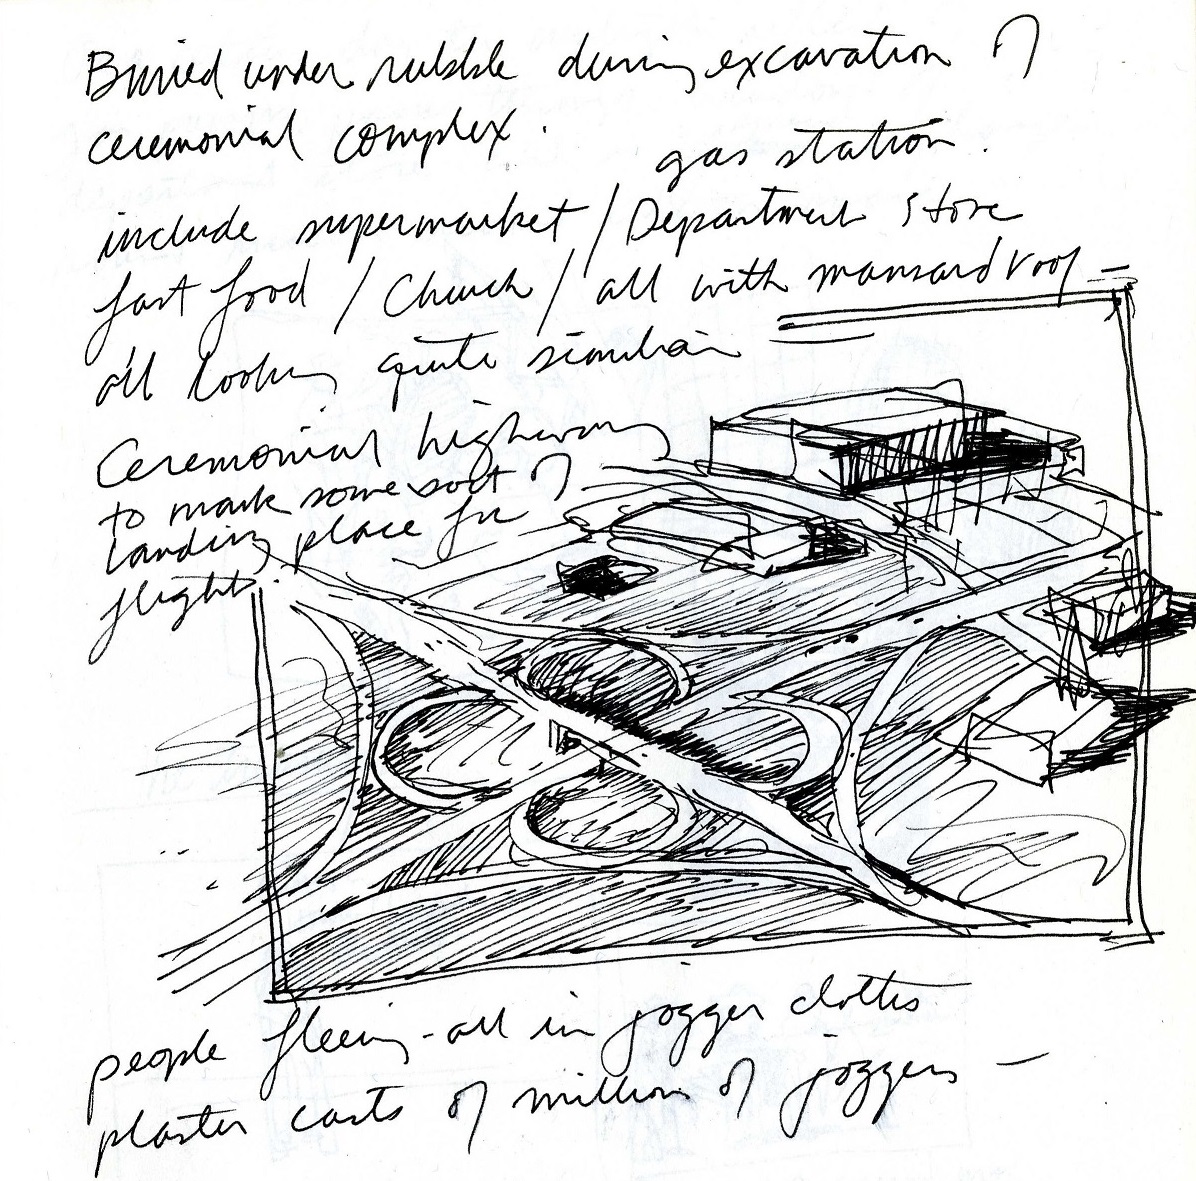 Buried under rubble during excavation of
ceremonial complex.
gas station.
include supermarket / Department Store
fast food / Church / all with mansard roof –
all looking quite similar
Ceremonial highway
to mark some sort of
landing place for
flight.
people fleeing – all in jogger clothes
plaster casts of millions of joggers –